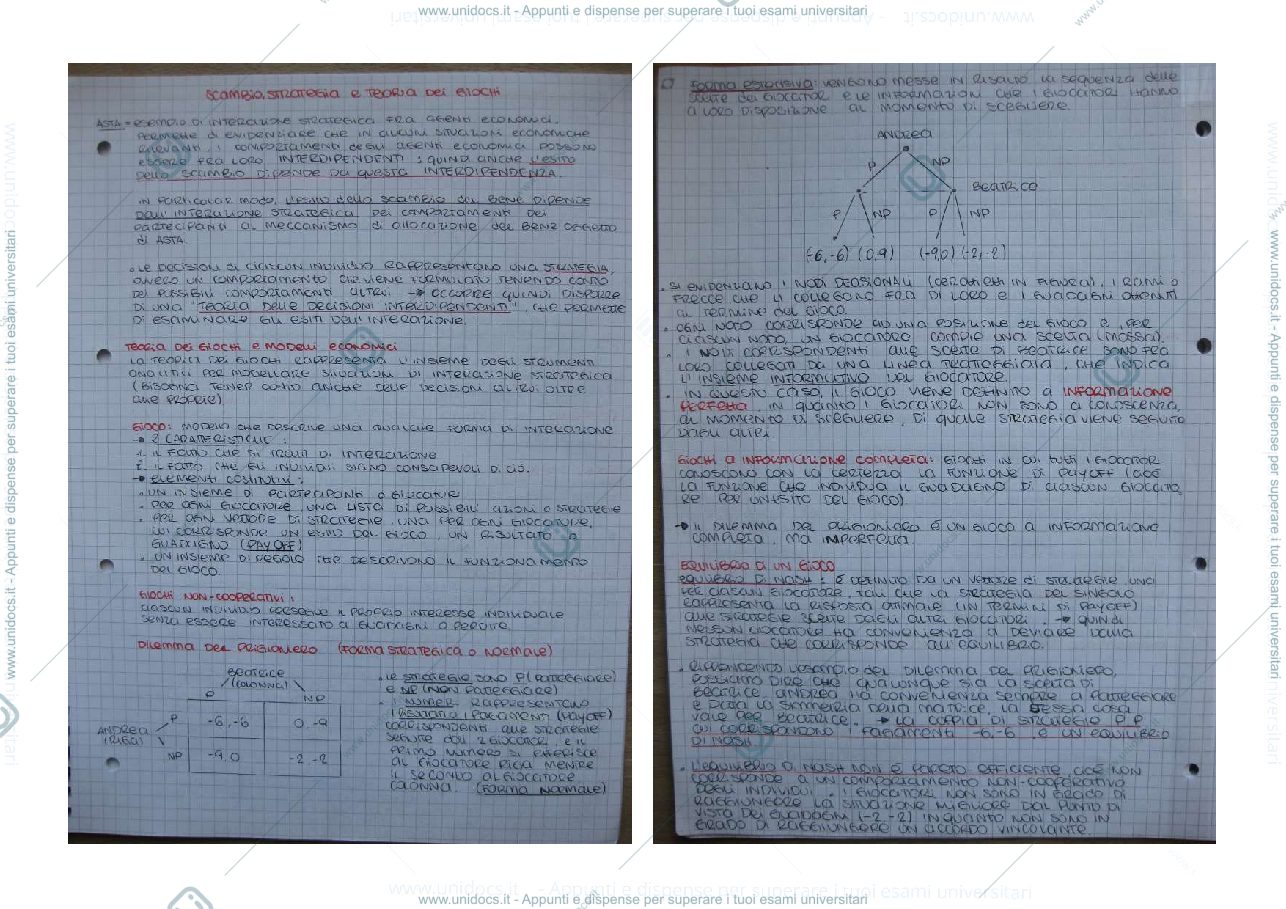 www.unidocs.it - Appunti e dispense per superare i tuoi esami universitari
SCAMBIO, STRATEGIA E TEORIA DEI GIOCHI
ASTA = ESEMPIO DI INTERAZIONE STRATEGICA FRA AGENTI ECONOMICI.
PERMETTE DI EVIDENZIARE CHE IN ALCUNI SITUAZIONI ECONOMICHE
RILEVANTI, I COMPORTAMENTI DEGLI AGENTI ECONOMICI POSSONO
ESSERE FRA LORO INTERDIPENDENTI : QUINDI ANCHE L'ESITO
DELLO SCAMBIO DIPENDE DA QUESTA INTERDIPENDENZA.
IN PARTICOLAR MODO, L'ESITO DELLO SCAMBIO DEL BENE DIPENDE
DALL'INTERAZIONE STRATEGICA DEI COMPORTAMENTI DEI
PARTECIPANTI AL MECCANISMO DI ALLOCAZIONE DEL BENE OGGETTO
DI ASTA.
• LE DECISIONI DI CIASCUN INDIVIDUO RAPPRESENTANO UNA STRATEGIA,
OVVERO UN COMPORTAMENTO CHE VIENE FORMULATO TENENDO CONTO
DEI POSSIBILI COMPORTAMENTI ALTRUI. → OCCORRE QUINDI DISPORRE
DI UNA "TEORIA DELLE DECISIONI INTERDIPENDENTI", CHE PERMETTE
DI ESAMINARE GLI ESITI DELL'INTERAZIONE.
TEORIA DEI GIOCHI E MODELLI ECONOMICI
LA TEORIA DEI GIOCHI RAPPRESENTA L'INSIEME DEGLI STRUMENTI
ANALITICI PER MODELLARE SITUAZIONI DI INTERAZIONE STRATEGICA
(BISOGNA TENER CONTO ANCHE DELLE DECISIONI ALTRUI OLTRE
ALLE PROPRIE)
GIOCO: MODELLO CHE DESCRIVE UNA QUALCHE FORMA DI INTERAZIONE
→ 2 CARATTERISTICHE :
1. IL FATTO CHE SI TRATTI DI INTERAZIONE
2. IL FATTO CHE GLI INDIVIDUI SIANO CONSAPEVOLI DI CIÒ.
→ ELEMENTI COSTITUTIVI :
• UN INSIEME DI PARTECIPANTI O GIOCATORI
• PER OGNI GIOCATORE, UNA LISTA DI POSSIBILI AZIONI O STRATEGIE
• PER OGNI VETTORE DI STRATEGIE, UNA PER OGNI GIOCATORE,
VI CORRISPONDE UN ESITO DEL GIOCO, UN RISULTATO O
GUADAGNO (PAY OFF)
• UN INSIEME DI REGOLE CHE DESCRIVONO IL FUNZIONAMENTO
DEL GIOCO.
GIOCHI NON-COOPERATIVI :
CIASCUN INDIVIDUO PERSEGUE IL PROPRIO INTERESSE INDIVIDUALE
SENZA ESSERE INTERESSATO A GUADAGNI O PERDITE.
DILEMMA DEL PRIGIONIERO (FORMA STRATEGICA O NORMALE)
BEATRICE
(COLONNA)
P NP
ANDREA
(RIGA)
P -6,-6 0,-9
NP -9,0 -2,-2
• LE STRATEGIE SONO P (PATTEGGIARE)
E NP (NON PATTEGGIARE)
• I NUMERI RAPPRESENTANO
I RISULTATI I PAGAMENTI (PAYOFF)
CORRISPONDENTI ALLE STRATEGIE
SEGUITE DAI 2 GIOCATORI, E IL
PRIMO NUMERO SI RIFERISCE
AL GIOCATORE RIGA MENTRE
IL SECONDO AL GIOCATORE
COLONNA. (FORMA NORMALE)
FORMA ESTENSIVA: VENGONO MESSE IN RISALTO LA SEQUENZA DELLE
SCELTE DEI GIOCATORI E LE INFORMAZIONI CHE I GIOCATORI HANNO
A LORO DISPOSIZIONE AL MOMENTO DI SCEGLIERE.
ANDREA
P NP
BEATRICE
P NP P NP
(-6,-6) (0,-9) (-9,0) (-2,-2)
• SI EVIDENZIANO I NODI DECISIONALI (CERCHIETTI IN FIGURA), I RAMI O
FRECCE CHE LI COLLEGANO FRA DI LORO E I GUADAGNI OTTENUTI
AL TERMINE DEL GIOCO.
• OGNI NODO CORRISPONDE AD UNA POSIZIONE DEL GIOCO E, PER
CIASCUN NODO, UN GIOCATORE COMPIE UNA SCELTA (MOSSA).
• I NODI CORRISPONDENTI ALLE SCELTE DI BEATRICE SONO FRA
LORO COLLEGATI DA UNA LINEA TRATTEGGIATA, CHE INDICA
L'INSIEME INFORMATIVO DEL GIOCATORE.
• IN QUESTO CASO, IL GIOCO VIENE DEFINITO A INFORMAZIONE
PERFETTA, IN QUANTO I GIOCATORI NON SONO A CONOSCENZA,
AL MOMENTO DI SCEGLIERE, DI QUALE STRATEGIA VIENE SEGUITA
DAGLI ALTRI.
GIOCHI A INFORMAZIONE COMPLETA: GIOCHI IN CUI TUTTI I GIOCATORI
CONOSCONO CON LA CERTEZZA LA FUNZIONE DI PAYOFF (CIOÈ
LA FUNZIONE CHE INDIVIDUA IL GUADAGNO DI CIASCUN GIOCATO
RE PER UN ESITO DEL GIOCO).
→ IL DILEMMA DEL PRIGIONIERO È UN GIOCO A INFORMAZIONE
COMPLETA, MA IMPERFETTA.
EQUILIBRIO DI UN GIOCO
EQUILIBRIO DI NASH : È DEFINITO DA UN VETTORE DI STRATEGIE, UNA
PER CIASCUN GIOCATORE, TALI CHE LA STRATEGIA DEL SINGOLO
RAPPRESENTA LA RISPOSTA OTTIMALE (IN TERMINI DI PAYOFF)
ALLE STRATEGIE SCELTE DAGLI ALTRI GIOCATORI. → QUINDI
NESSUN GIOCATORE HA CONVENIENZA A DEVIARE DALLA
STRATEGIA CHE CORRISPONDE ALL'EQUILIBRIO.
• RIPRENDENDO L'ESEMPIO DEL DILEMMA DEL PRIGIONIERO,
POSSIAMO DIRE CHE QUALUNQUE SIA LA SCELTA DI
BEATRICE, ANDREA HA CONVENIENZA SEMPRE A PATTEGGIARE
E DATA LA SIMMETRIA DELLA MATRICE, LA STESSA COSA
VALE PER BEATRICE. → LA COPPIA DI STRATEGIE P,P
CUI CORRISPONDONO I PAGAMENTI -6,-6, È UN EQUILIBRIO
DI NASH.
• L'EQUILIBRIO DI NASH NON È PARETO EFFICIENTE, CIOÈ NON
CORRISPONDE A UN COMPORTAMENTO NON-COOPERATIVO
DEGLI INDIVIDUI. I GIOCATORI NON SONO IN GRADO DI
RAGGIUNGERE LA SITUAZIONE MIGLIORE DAL PUNTO DI
VISTA DEI GUADAGNI (-2,-2) IN QUANTO NON SONO IN
GRADO DI RAGGIUNGERE UN ACCORDO VINCOLANTE.
www.unidocs.it - Appunti e dispense per superare i tuoi esami universitari